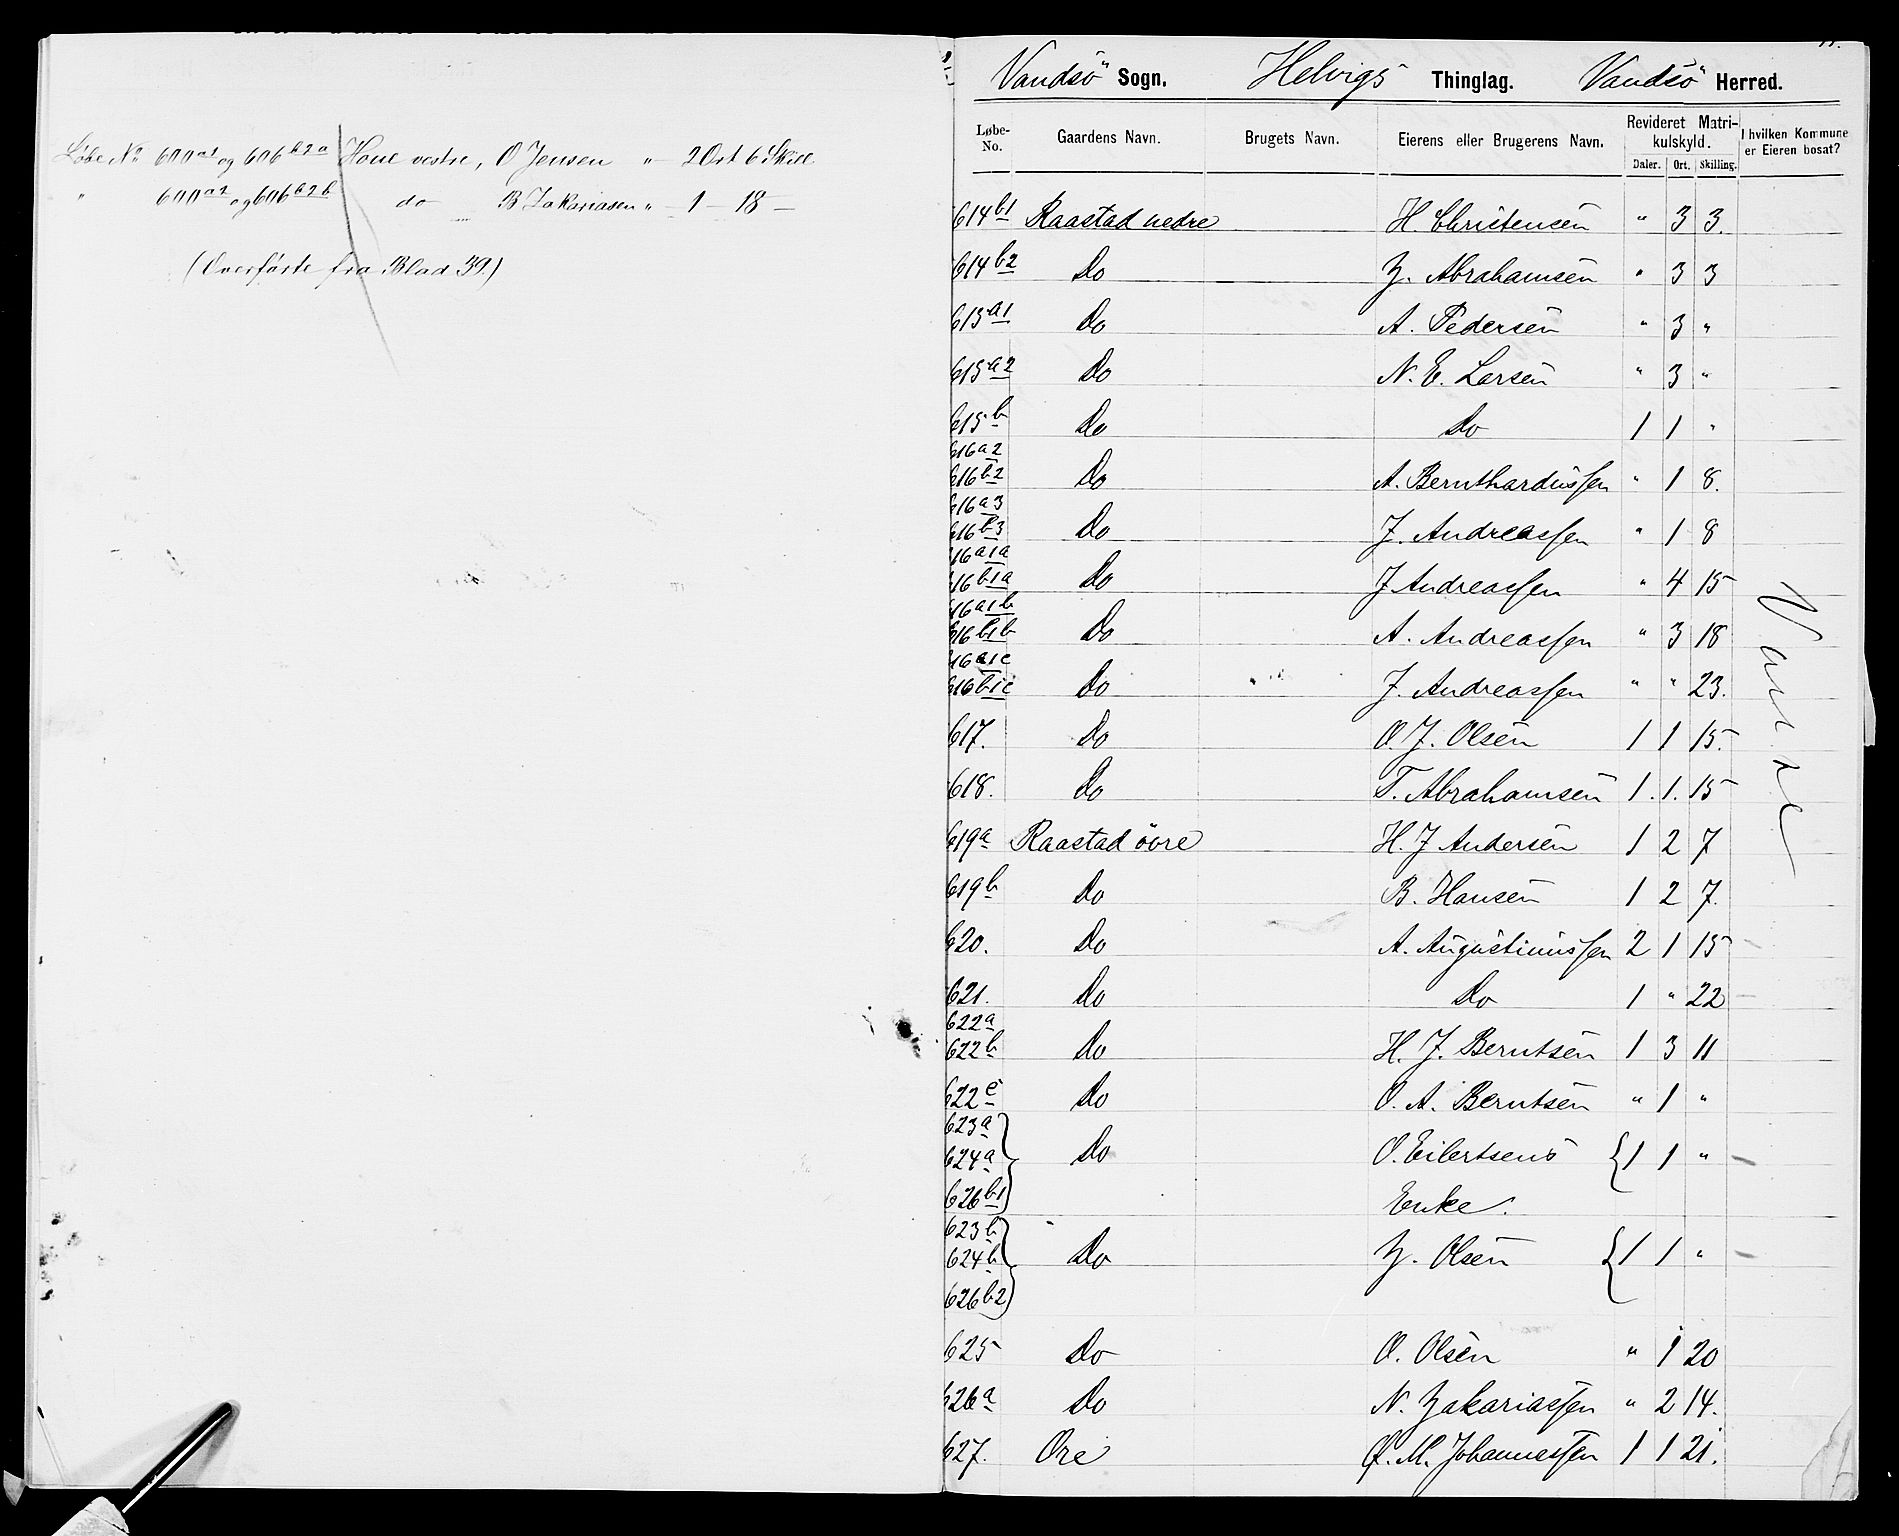 Løbe No 600a1 og 606b2a Houe vestre, O Jensen " - 2 Ort 6 Skill.
" 600a2 og 606b2b do B Zakariasen " - 1 - 18 -
(Overførte fra Blad 39.)
Vandsö Sogn. Helvigs Thinglag. Vandsö Herred.
Løbe-No. Gaardens Navn. Brugets Navn. Eierens eller Brugerens Navn. Revideret Matrikulskyld. I hvilken Kommune er Eieren bosat?
Daler. Ort. Skilling.
614b1 Raastad nedre H. Christensen " 3 3.
614b2 Do Z. Abrahamsen " 3 3
615a1 Do A. Pedersen " 3 "
615a2 Do N. E. Larsen " 3 "
615b Do Do 1 1 "
616a2
616b2 Do A. Bernthardussen " 1 8.
616a3
616b3 Do J. Andreassen " 1 8
616a1a
616b1a Do J Andreassen " 4 15
616a1b
616b1b Do A. Andreassen " 3 18
616a1c
616b1c Do J. Andreassen " " 23.
617. Do O. J. Olsen 1 1 15.
618. Do T. Abrahamsen 1. 1. 15
619a Raastad övre H. J Andersen 1 2 7
619b Do B. Hansen 1 2 7.
620. Do A. Augustinussen 2 1 15
621. Do Do 1 " 22
622a
622b Do H. J. Berntsen 1 3 11
622c Do O. A. Berntsen " 1 "
623a
624a Do O. Eilertsens 1 1 "
626b1 Enke.
623b
624b Do Z. Olsen 1 1 "
626b2
625 Do O. Olsen " 1 20
626a Do N. Zakariassen " 2 14.
627. Ore O. M. Johannessen 1 1 21.
Vanse